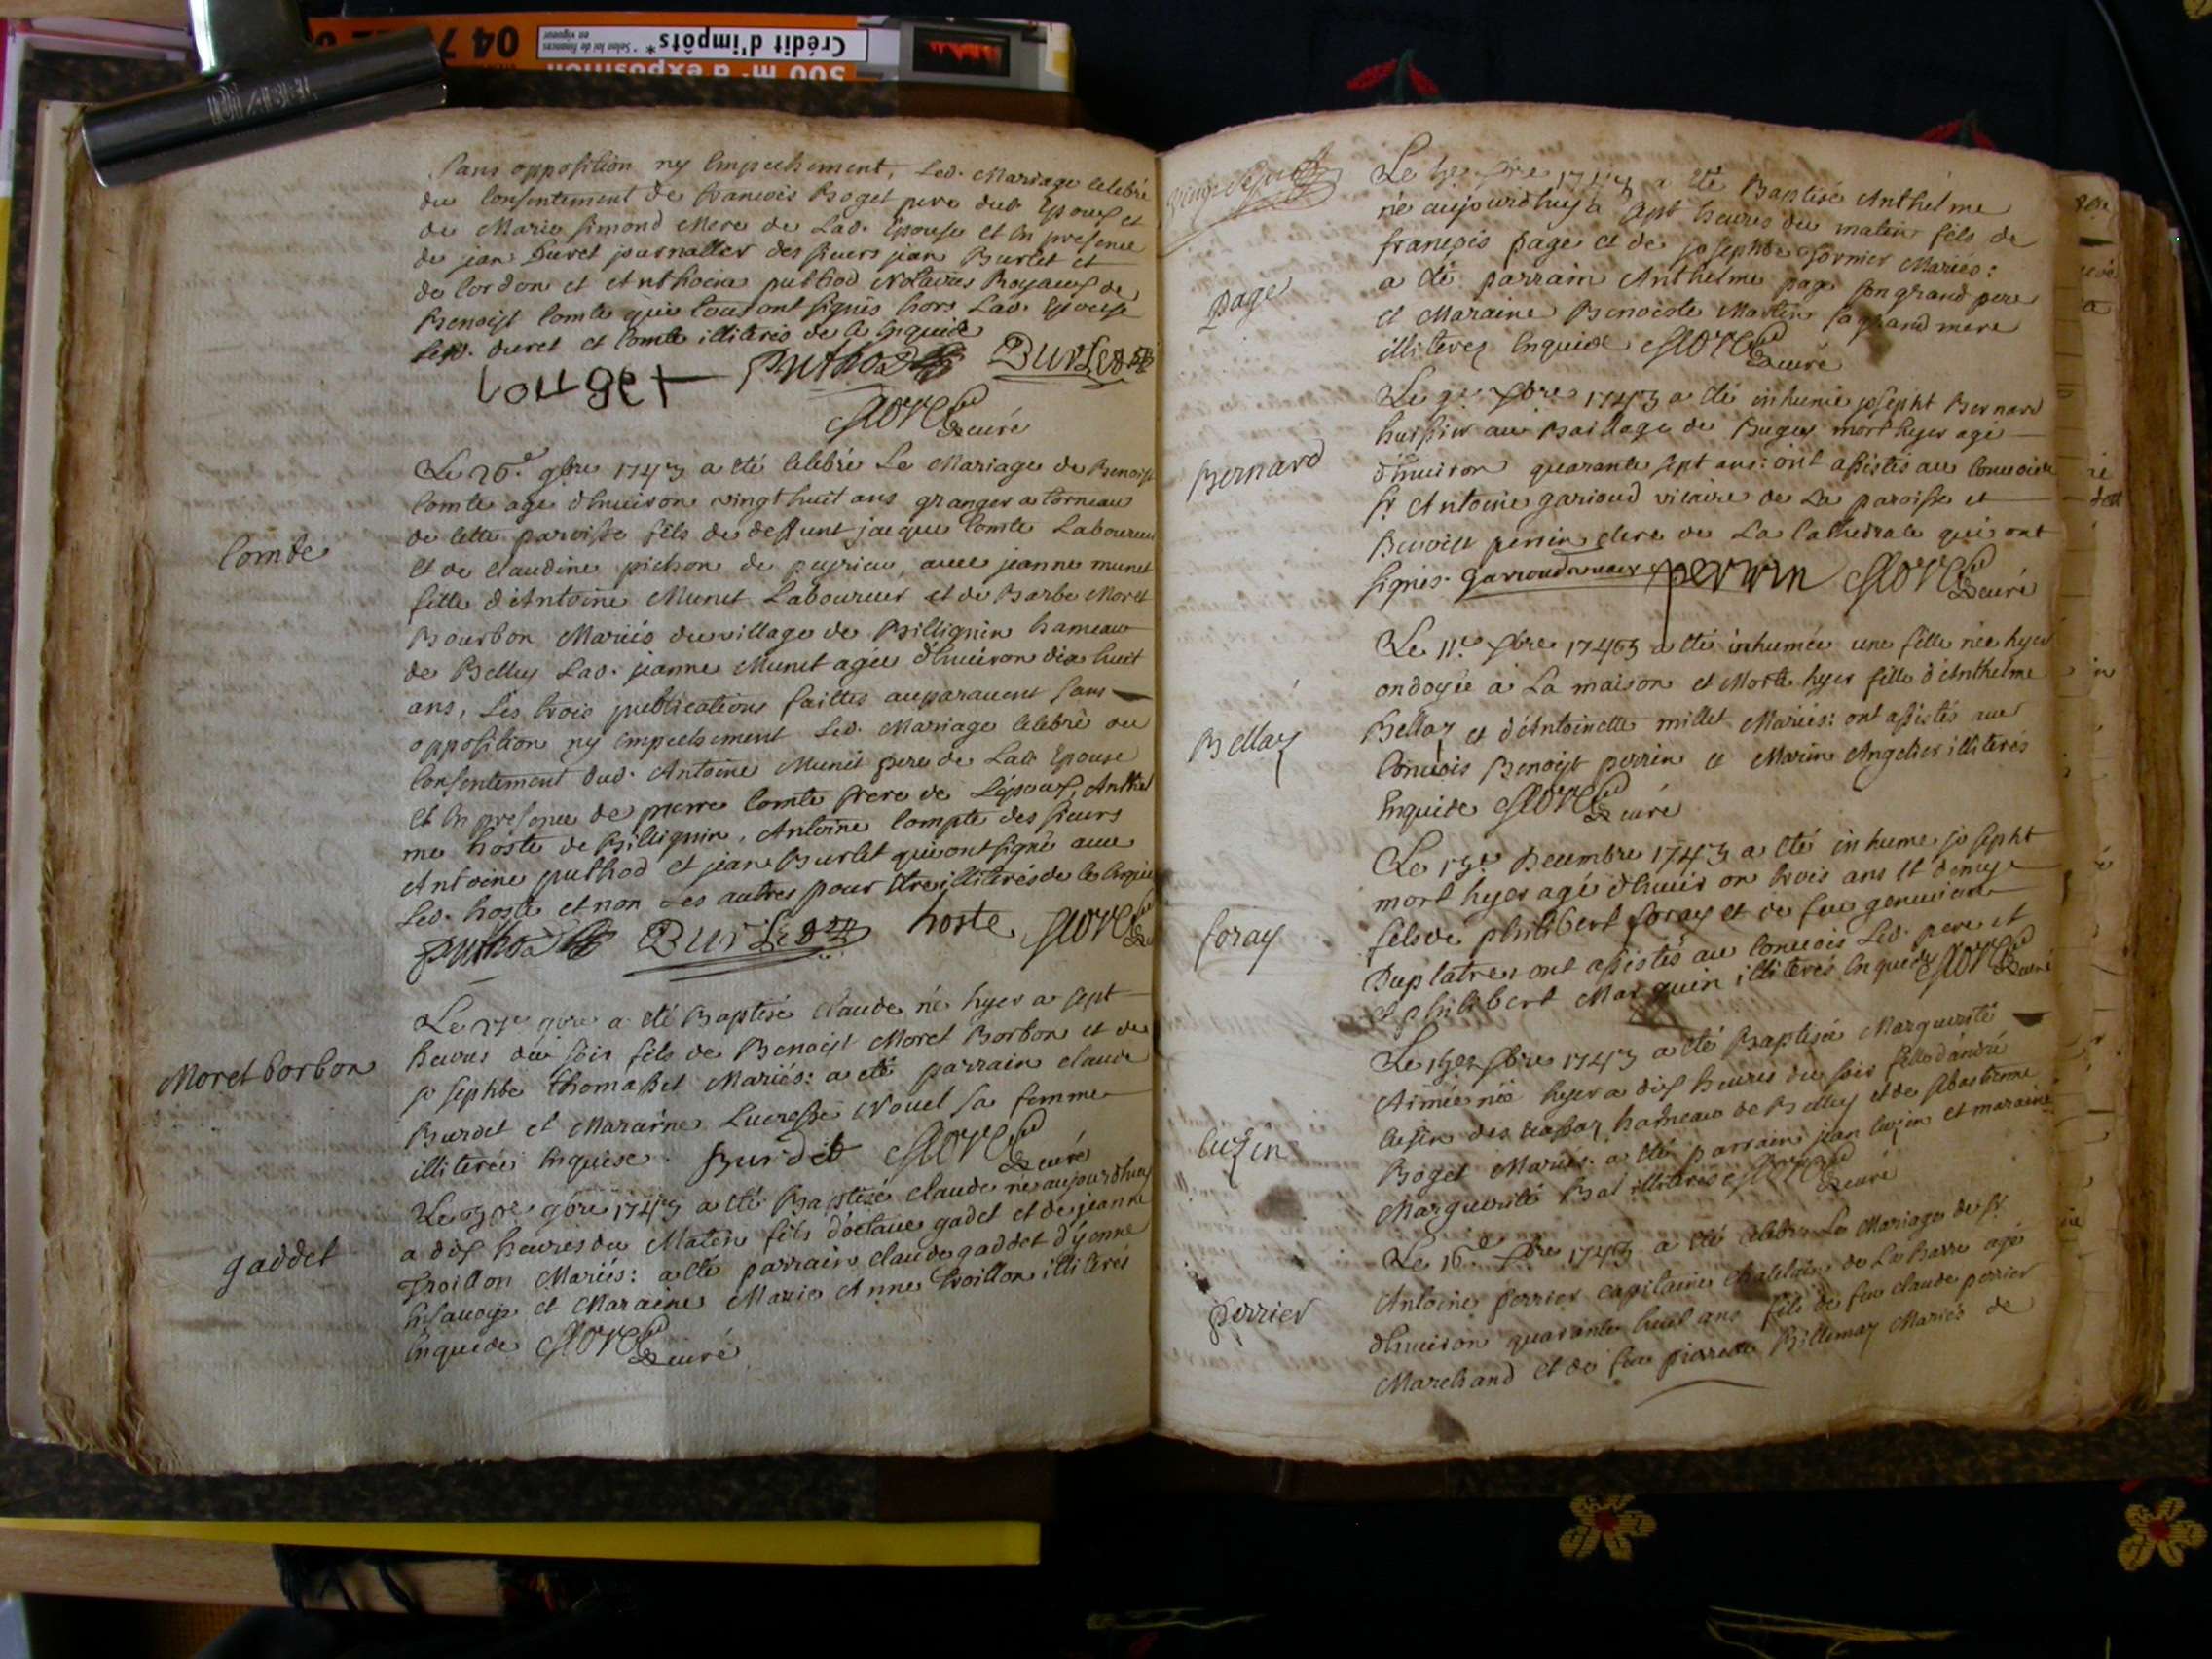 Crédit d'impôts*
* Selon loi de finances
en vigueur
500 m² d'exposition
04 7
sans opposition ny Empechement, Led. Mariage Celebré
du Consentement de francois Boget pere dud. Epoux et
de Marie Simond Mere de Lad. Epouse et En presence
de jean Duret journallier des sieurs jean Burlet et
de Cordon et Anthoine puthod Notaires Royaux de
Benoist Comte qui tous ont signés hors Lad. Epouse
Led. duret et Comte illiterés de ce Enquis
Puthod Burlet
curé
Le 26e 9bre 1743 a été Celebré Le Mariage de Benoist
Comte age d'Environ vingt huit ans granger a Corneau
de Cette paroisse fils de deffunt jacque Comte Laboureur
Et de Claudine pichon de peyrieu, avec jeanne munet
fille d'Antoine Munet Laboureur et de Barbe Moret
Bourbon Mariés du village de Billignin hameau
de Belley Lad. jeanne Munet agée d'Environ dix huit
ans, Les trois publications faittes auparavent sans
opposition ny Empechement Led. Mariage Celebré du
Consentement dud. Antoine Munet pere de Lad. Epouse
Et En presence de pierre Comte frere de L'epoux, Anthel
me hoste de Billignin, Antoine Compte des sieurs
Antoine puthod et jean Burlet qui ont signé avec
Led. hoste et non Les autres pour Etre illiterés de ce Enquis
Puthod Burlet hoste
Comte
Le 9bre a été Baptisé Claude né hyer a sept
heures du soir fils de Benoist Moret Borbon et de
josephte thomasset Mariés: a été parrain claude
Burdet et Maraine Lucresse Nouel sa femme
illiterée Enquise. Burdet
curé
Moret borbon
Le 9bre 1743 a été Baptisé claude né aujourdhuy
a dix heures du Matin fils d'octave gadet et de jeanne
Troillon Mariés: a été parrain claude gaddet d'yenne
En Savoye et Maraine Marie Anne Troillon illiterés
Enquis de
curé
gaddet
Le Xbre 1743 a été Baptisé Anthelme
né aujourdhuy a sept heures du matin fils de
françois page et de josephte fornier Mariés:
a été parrain Anthelme page son grand pere
et Maraine Benoiste Martin sa grand mere
illiterez Enquis
curé
Page
Le 9e Xbre 1743 a été inhumé josepht Bernard
huissier au Baillage de Bugey mort hyer agé
d'Environ quarante sept ans: ont assistés au Convoi
Sr Antoine garioud vicaire de La paroisse et
Benoist perrin clerc de La Cathedrale qui ont
signés. garioud vicaire perrin
curé
Bernard
Le 11e Xbre 1743 a été inhumée une fille née hyer
ondoyée a La maison et Morte hyer fille d'Anthelme
Bellay et d'Antoinette millet Mariés: ont assistés au
Convois Benoist perrin et Marin Angelier illiterés
Enquis de
curé
Bellay
Le 13e Decembre 1743 a été inhumé josepht
mort hyer agé d'Environ trois ans Et demy
fils de philibert foray et de feu genevieve
Duplatre: ont assistés au Convois Led. pere et
et philibert Marquin illiterés Enquis
curé
foray
Le Xbre 1743 a été Baptisée Marguerite
Aimée née hyer a dix heures du soir fille d'andré
Cuzin des hameau de Belley et de Sebastienne
Boget Mariés: a été parrain jean Cuzin et maraine
Marguerite Bal illiterés
curé
Cuzin
Le 16e Xbre 1743 a été Celebré Le Mariage de Sr
Antoine perrier Capitaine Chatelain de La barre agé
d'Environ quarante huit ans fils de feu claude perrier
Marchand et de feu pierrette Billemaz Mariés de
perrier